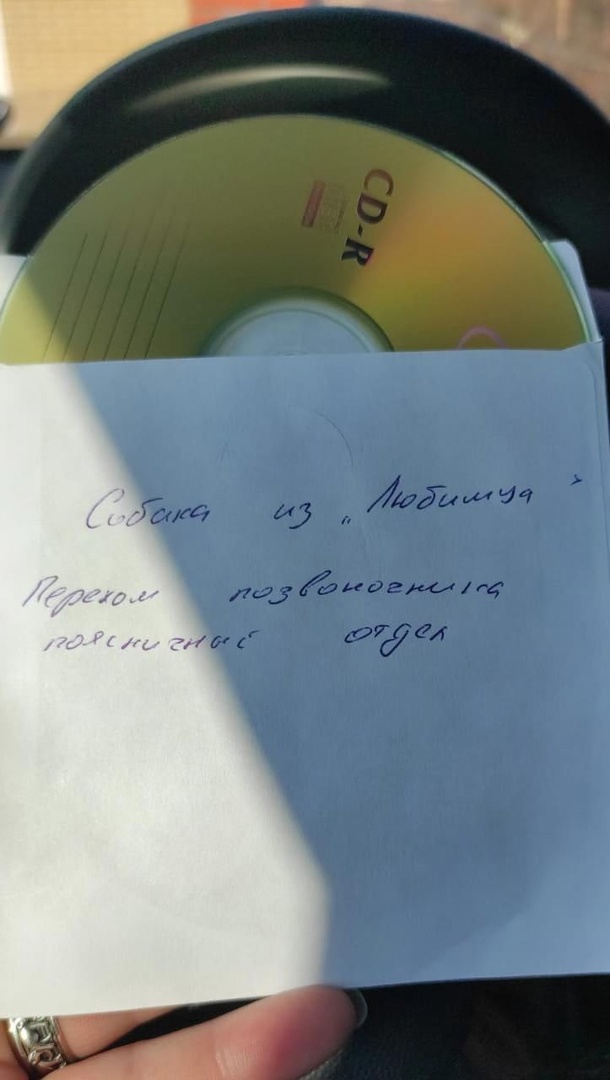 CD-R
Собака из „Любимца”
Перелом позвоночника
поясничный отдел